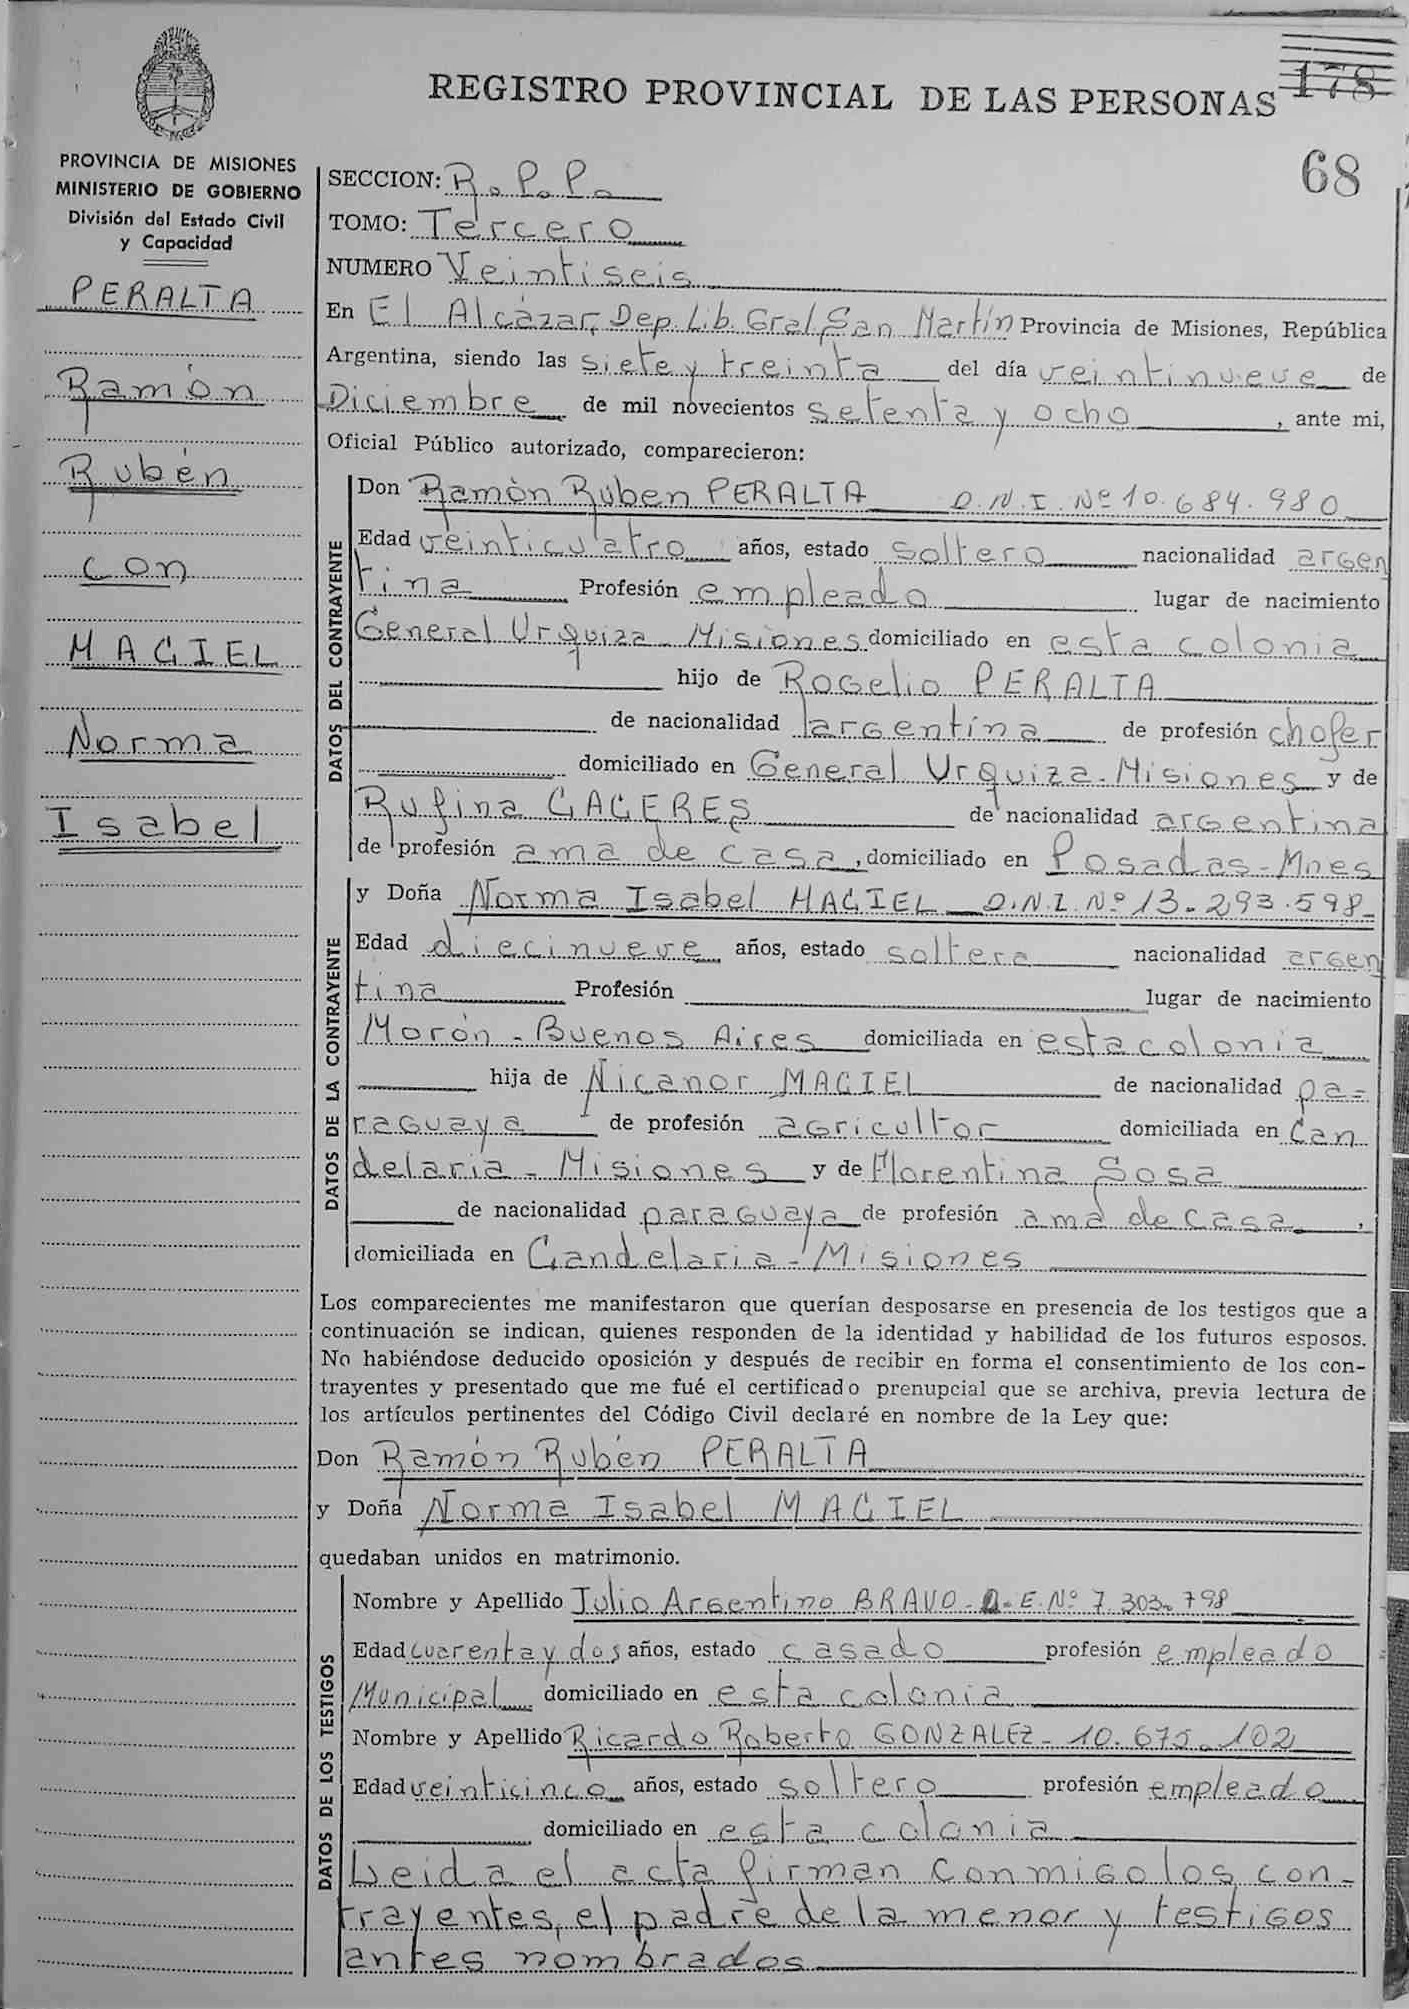 REGISTRO PROVINCIAL DE LAS PERSONAS
178
68
PROVINCIA DE MISIONES
MINISTERIO DE GOBIERNO
División del Estado Civil
y Capacidad
PERALTA
Ramón
Rubén
con
MACIEL
Norma
Isabel
SECCION: R.P.P.
TOMO: Tercero
NUMERO Veintiseis
En El Alcázar, Dep. Lib. Gral. San Martín Provincia de Misiones, República
Argentina, siendo las siete y treinta del día veintinueve de
Diciembre de mil novecientos setenta y ocho, ante mi,
Oficial Público autorizado, comparecieron:
DATOS DEL CONTRAYENTE
Don Ramón Rúben PERALTA D.N.I. Nº 10.684.980
Edad veinticuatro años, estado soltero nacionalidad argen
tina Profesión empleado lugar de nacimiento
General Urquiza - Misiones domiciliado en esta colonia
hijo de Rogelio PERALTA
de nacionalidad argentina de profesión chofer
domiciliado en General Urquiza - Misiones y de
Rufina CACERES de nacionalidad argentina
de profesión ama de casa, domiciliado en Posadas - Mnes
DATOS DE LA CONTRAYENTE
y Doña Norma Isabel MACIEL D.N.I. Nº 13.293.598-
Edad diecinueve años, estado soltera nacionalidad argen
tina Profesión lugar de nacimiento
Morón - Buenos Aires domiciliada en esta colonia
hija de Nicanor MACIEL de nacionalidad pa=
raguaya de profesión agricultor domiciliada en Can
delaria - Misiones y de Florentina Sosa
de nacionalidad paraguaya de profesión ama de casa,
domiciliada en Candelaria - Misiones
Los comparecientes me manifestaron que querían desposarse en presencia de los testigos que a
continuación se indican, quienes responden de la identidad y habilidad de los futuros esposos.
No habiéndose deducido oposición y después de recibir en forma el consentimiento de los con-
trayentes y presentado que me fué el certificado prenupcial que se archiva, previa lectura de
los artículos pertinentes del Código Civil declaré en nombre de la Ley que:
Don Ramón Rubén PERALTA
y Doña Norma Isabel MACIEL
quedaban unidos en matrimonio.
DATOS DE LOS TESTIGOS
Nombre y Apellido Julio Argentino BRAVO - L.E. Nº 7.303.798
Edad cuarenta y dos años, estado casado profesión empleado
Municipal domiciliado en esta colonia
Nombre y Apellido Ricardo Roberto GONZALEZ - 10.675.102
Edad veinticinco años, estado soltero profesión empleado
domiciliado en esta colonia
Leida el acta firman conmigo los con-
trayentes, el padre de la menor y testigos
antes nombrados